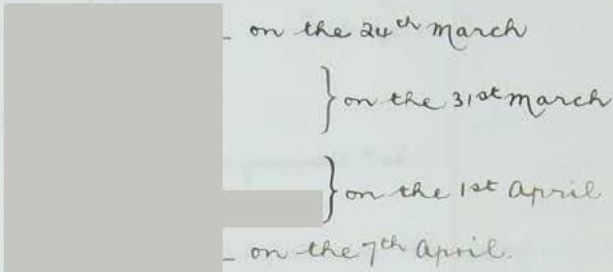 on the 24th March
on the 31st March
on the 1st April
on the 7th April.